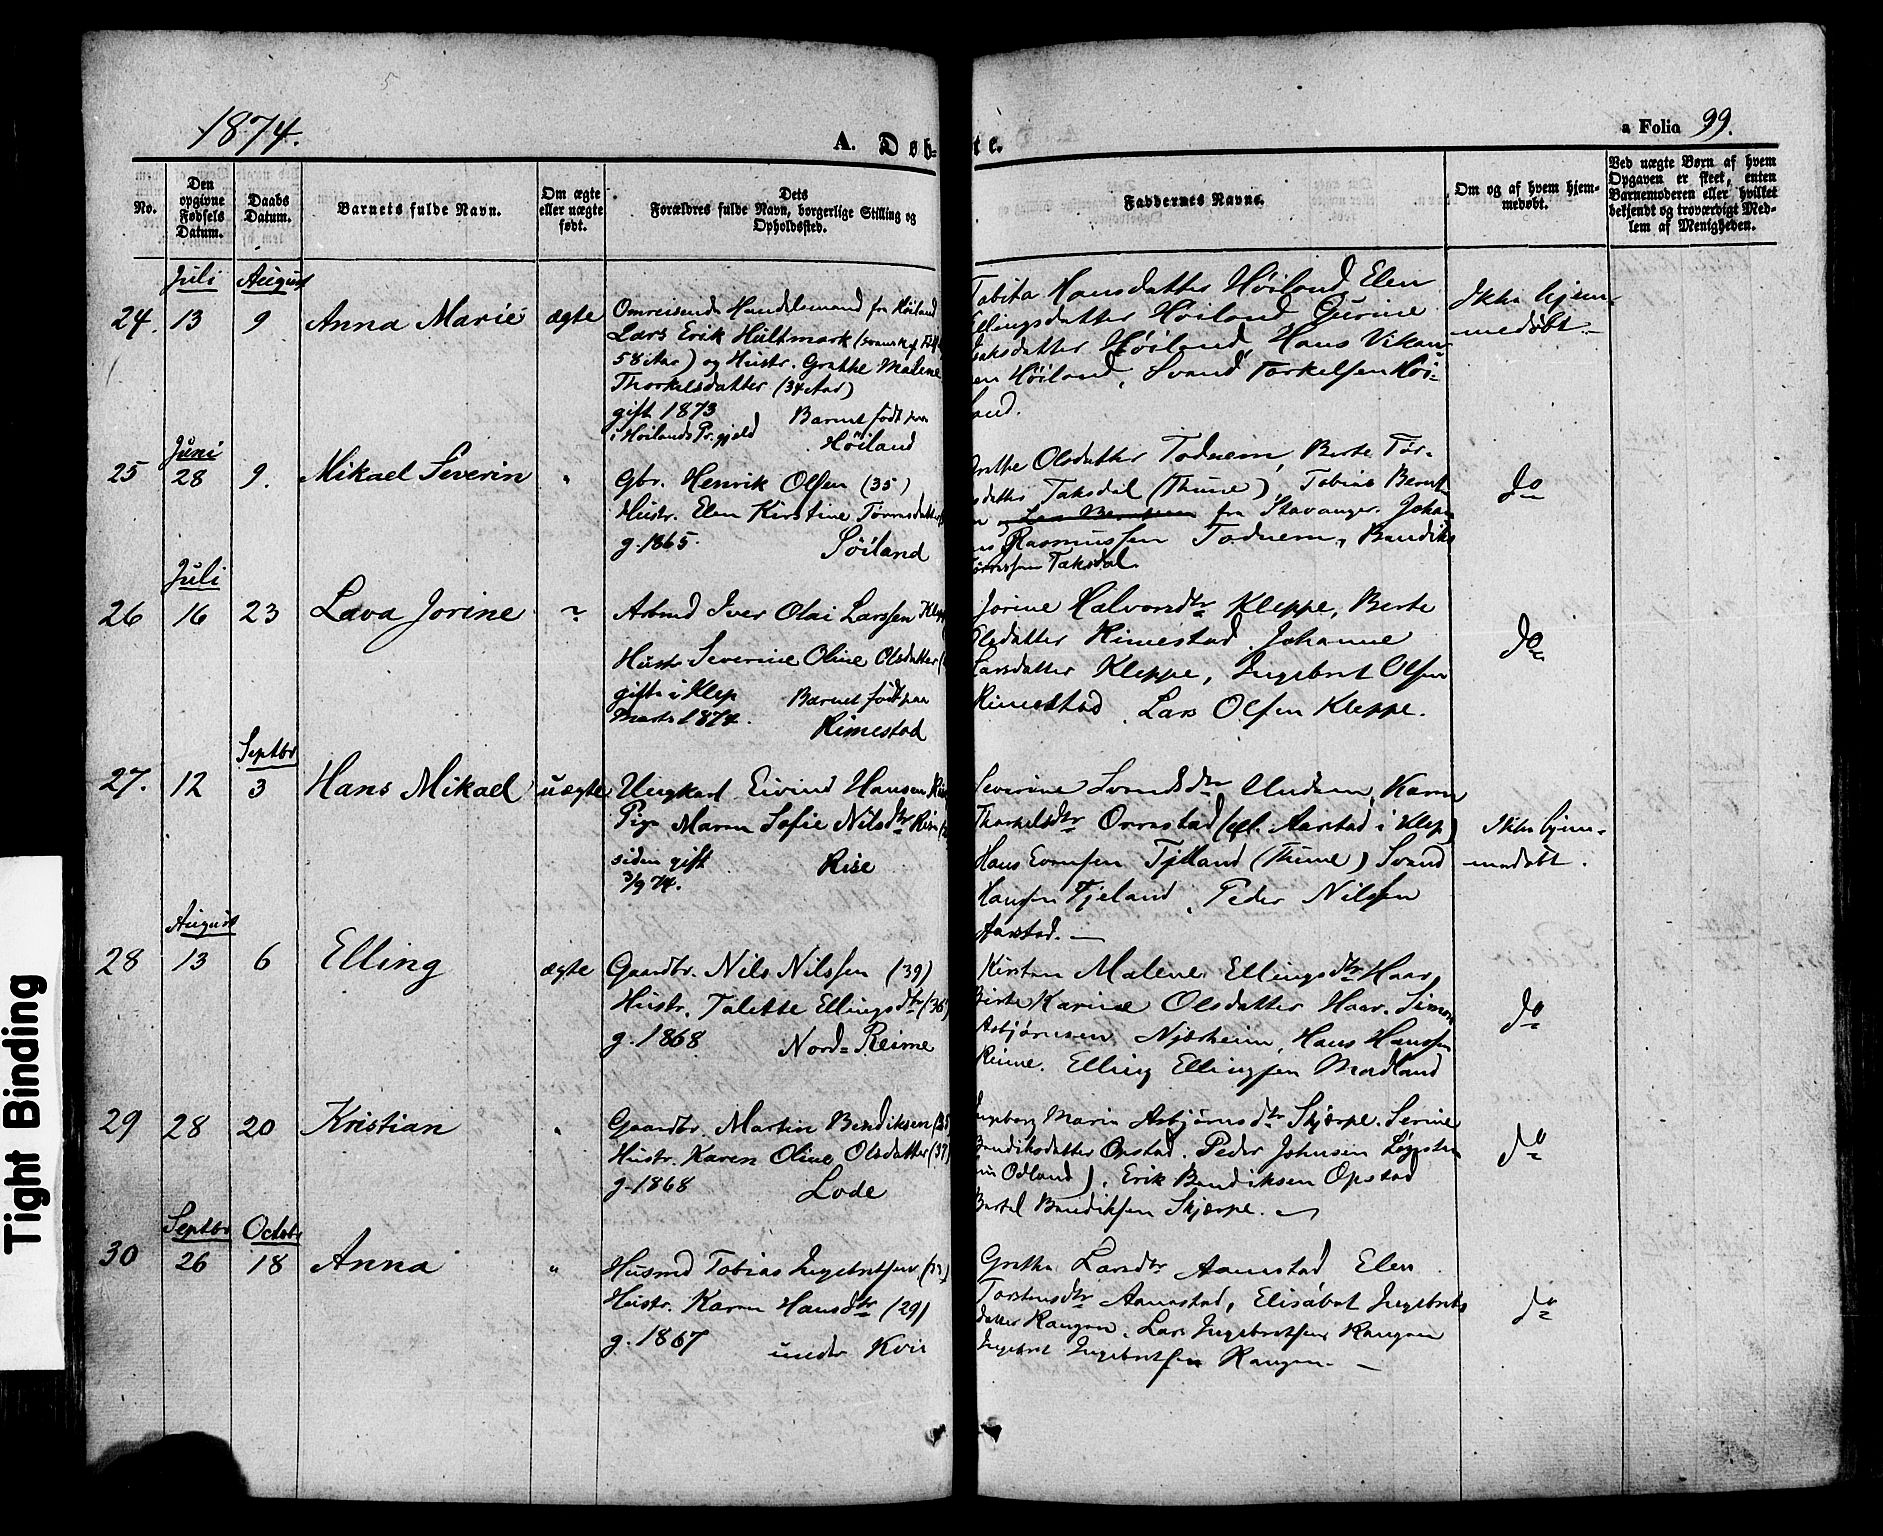 1874.
A. Døb-
te.
a Folio 99.
No.
Den opgivne Fødsels Datum.
Daabs Datum.
Barnets fulde Navn.
Om ægte eller uægte født.
Dets Forældres fulde Navn, borgerlige Stilling og Opholdssted.
Faddernes Navne.
Om og af hvem hjemmedøbt.
Ved uægte Børn af hvem Opgaven er skeet, enten Barnemoderen eller hvilket bekjendt og troværdigt Medlem af Menigheden.
Juli August
24. 13 9 Anna Marie ægte
Omreisende Handelsmand fra Høiland
Lars Erik Hultmark
58 Aar) og Hustr. Grethe Malene
Thorkelsdatter (34 Aar)
gift 1873 Barnet født paa
i Høilands Pr.gjeld Høiland
Tobita Hansdatter Høiland Elen
Ellingsdatter Høiland Gurine
Isaksdatter Høiland, Hans Vikan-
en Høiland, Svend Torkelsen Høi-
land.
Ikke hjem-
medøbt
Juni
25 28 9. Mikael Severin "
Gbr. Henrik Olsen (35)
Hustr. Elen Kirstine Tørresdatter
g. 1865. Søiland
Grethe Olsdatter Todnem, Berte Tør-
sdatter Taksdal (Thime) Tobias Bernt-
n fra Stavanger. Johan
s Rasmussen Todnem, Bendiks
Tørressen Taksdal.
do
Juli
26 16 23 Lava Jorine "
Arbmd Iver Olai Larssen Klep
Hustr Severine Oline Olsdatter
gifte i Klep Barnet født paa
Marts 1874. Rimestad
Jorine Halvorsdtr Kleppe, Berte
Olsdatter Rimestad. Johanne
Larsdatter Kleppe, Ingebret Olsen
Rimestad, Lars Olsen Kleppe.
do
Septbr
27. 12 3 Hans Mikael uægte
Ungkarl Eivind Hansen
Pige Maren Sofie Nilsdtr Rise
siden gift Rise
3/9 74.
Severine Svendsdtr Undem, Karen
Thorkelsdtr Orrestad (gl. Aarstad i Klep)
Hans Tjelland (Thime) Svend
Hansen Tjeland, Peder Nilssen
Aarstad. —
Ikke hjem-
medøbt.
August
28 13 6 Elling ægte
Gaardbr. Nils Nilssen (39)
Hustr. Talette Ellingsdtr (36)
g. 1868 Nord-Reime
Kirsten Malene Ellingsdtr Haar,
Berte Karine Olsdatter Haar. Simon
Asbjørnsen Njærheim, Hans Hanssen
Reime. Elling Ellingsen Madland
do
29 28 20 Kristian "
Gaardbr. Martin Bendiksen
Hustr. Karen Oline Olsdatter (37)
g. 1868 Lode
Ingeborg Marie Asbjørnsdtr Skjærpe. Serine
Bendiksdatter Opstad. Peder Johnsen
Odland), Erik Bendiksen Opstad
Bertel Bendiksen Skjærpe. —
do
Septbr Octobr
30 26 18 Anna "
Husmd Tobias Ingebretsen
Hustr. Karen Hansdtr (29)
g. 1867 under Kvie
Grethe Larsdtr Aanestad Elen
Torstensdtr Aanestad, Elisabet Ingebrets
datter Rangen. Lars Ingebretsen Rangen
Ingebret Ingebretsen Rangen. —
do
Tight Binding